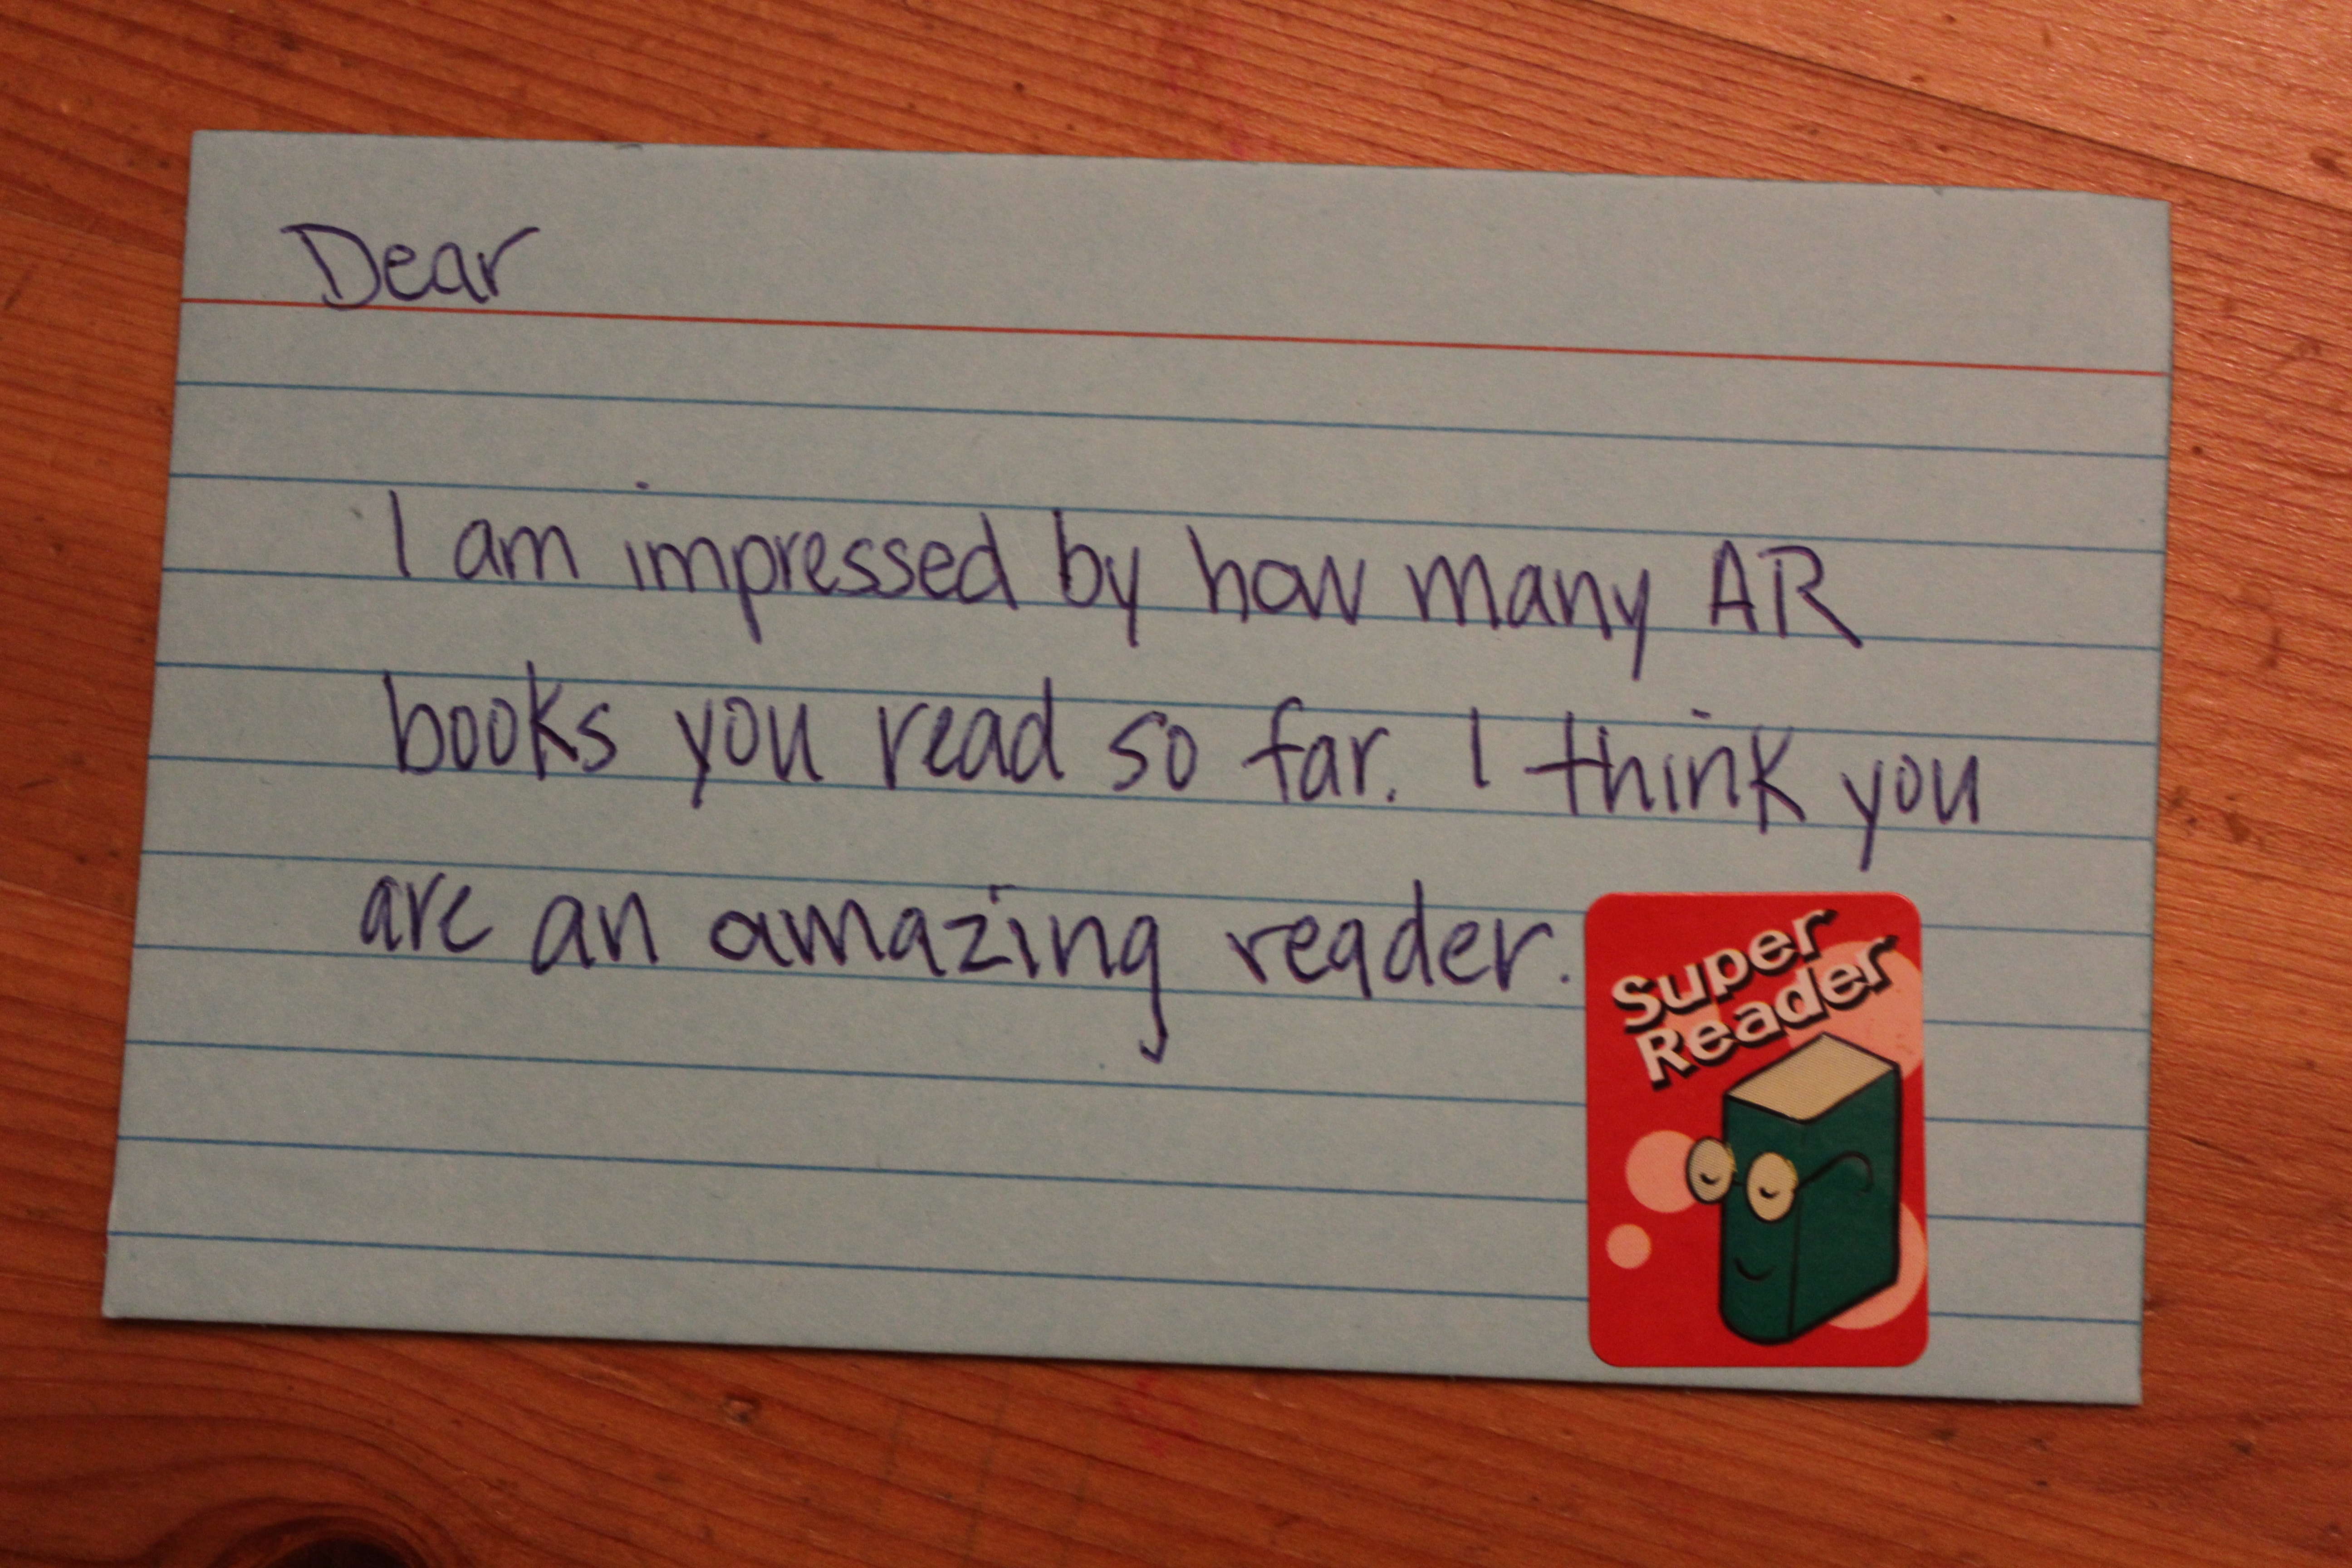 Dear
I am impressed by how many AR
books you read so far. I think you
are an amazing reader.
Super
Reader